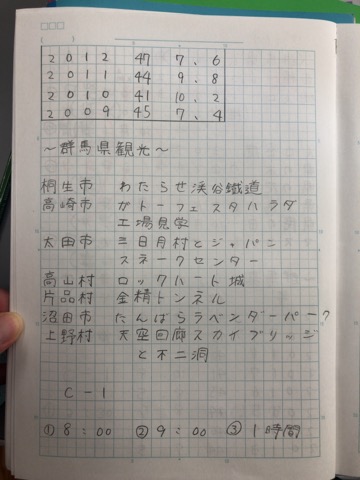 2012 47 7.6
2011 44 9.8
2010 41 10.2
2009 45 7.4
～群馬県観光～
桐生市 わたらせ渓谷鐵道
高崎市 ガトーフェスタハラダ
工場見学
太田市 三日月村とジャパン
スネークセンター
高山村 ロックハート城
片品村 金精トンネル
沼田市 たんばらラベンダーパーク
上野村 天空回廊スカイブリッジ
と不二洞
C-1
①8:00 ②9:00 ③1時間